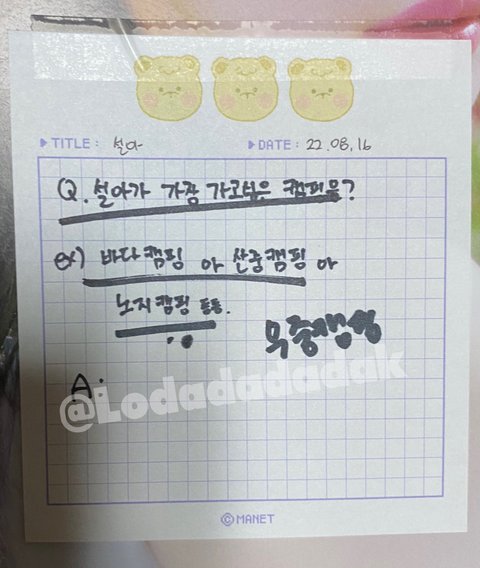 TITLE: 설아
DATE: 22.08.16
Q. 설아가 가장 가고싶은 캠핑은?
ex) 바다캠핑 아 산중캠핑 아
노지캠핑 등등.
우중캠핑
A.
@Lodadadadak
©MANET